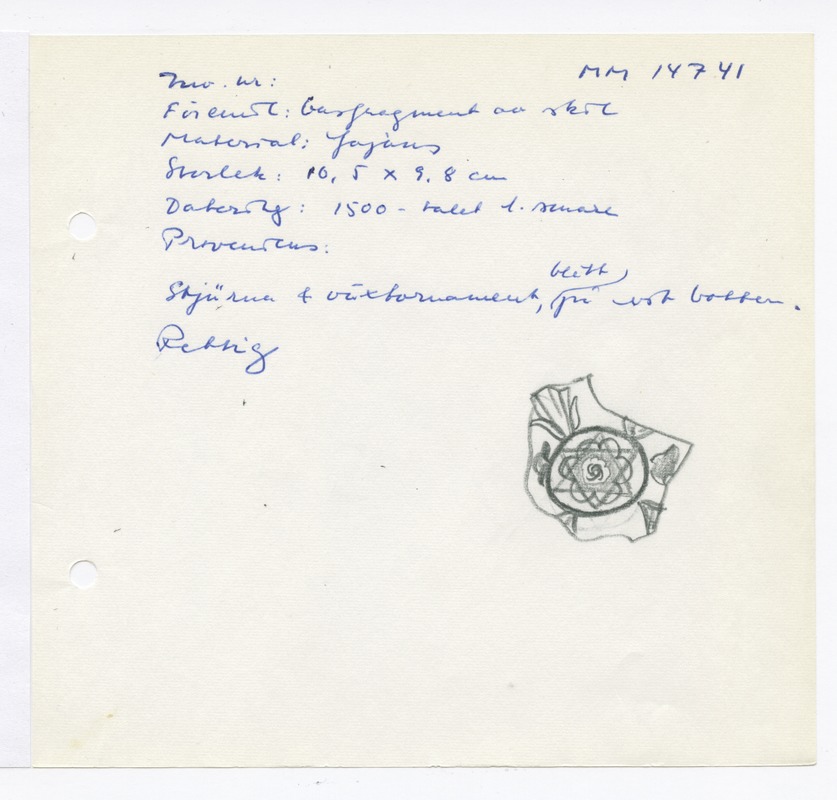 Inv. nr: MM 14741
Föremål: basfragment av skål
Material: fajans
Storlek: 10,5 x 9,8 cm
Datering: 1500-talet l. senare
Proveniens:
blått,
Stjärna & växtornament, på vit botten.
Rettig